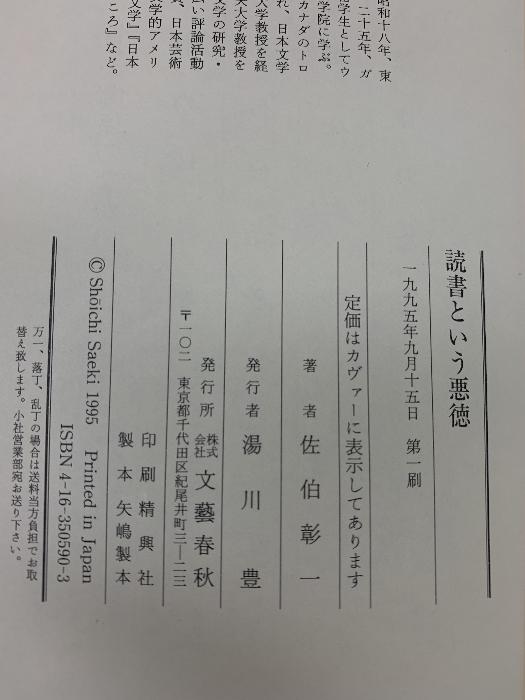 昭和十八年、東
二十五年、ガ
学生としてウ
学院に学ぶ。
カナダのトロ
れ、日本文学
大学教授を経
大学教授を
文学の研究・
い評論活動
、日本芸術
学的アメリ
文学』『日本
ころ』など。
読書という悪徳
一九九五年九月十五日 第一刷
定価はカヴァーに表示してあります
著者 佐伯彰一
発行者 湯川豊
発行所 株式会社 文藝春秋
〒一〇二 東京都千代田区紀尾井町三―二三
印刷 精興社
製本 矢嶋製本
© Shōichi Saeki 1995 Printed in Japan
ISBN 4-16-350590-3
万一、落丁、乱丁の場合は送料当方負担でお取
替え致します。小社営業部宛お送り下さい。